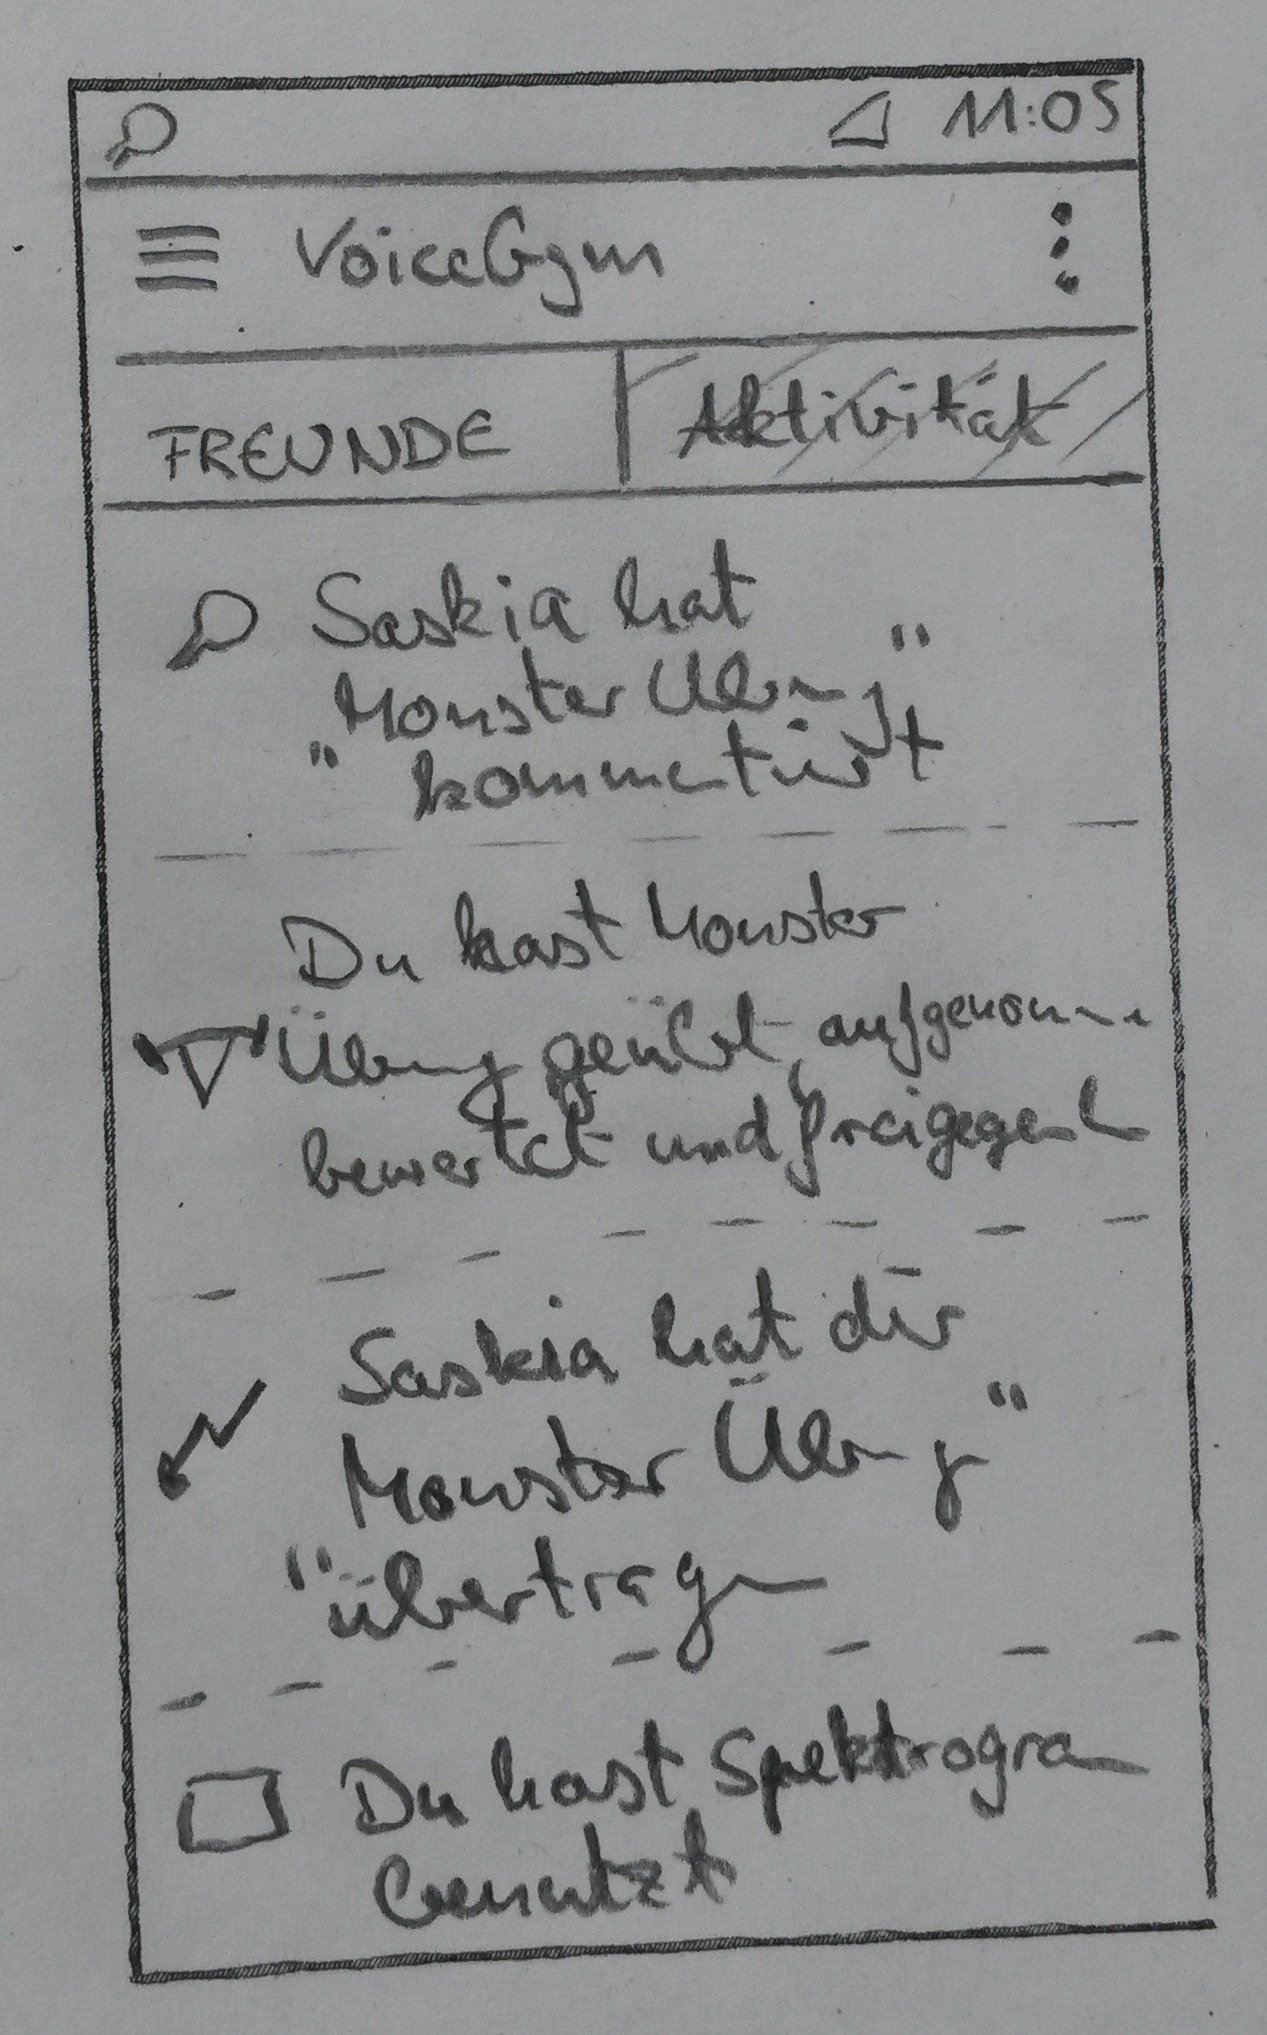 11:05
VoiceGym
FREUNDE Aktivität
Saskia hat
Monster Übung"
"kommentiert
Du hast Monster
Übung geübt, aufgenommen
bewertet und freigegeben
Saskia hat dir
Monster Übung"
"übertragen
Du hast Spektrogram
benutzt